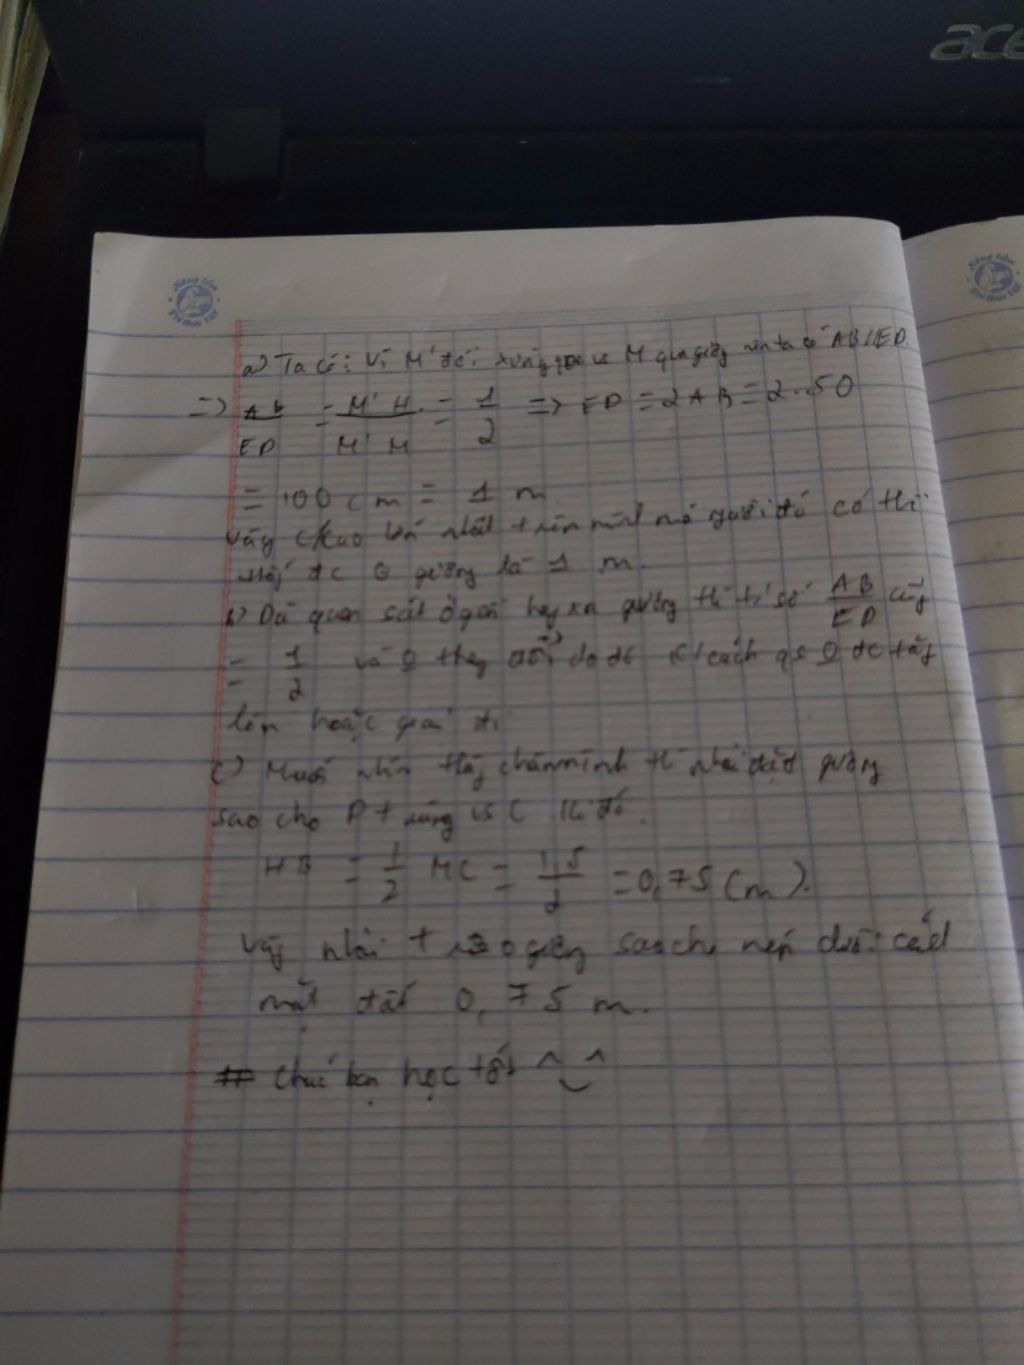 acer
a) Ta có: Vì M' đối xứng vs M qua gương nên ta có AB//ED.
=> AB/ED = M'H/M'M = 1/2 => ED = 2AB = 2.50
= 100 cm = 1 m
Vậy c/cao lớn nhất trên mình mà người đó có thể
thấy đc gương là 1 m.
b) Dù quan sát ở gần hay xa gương thì tỉ số AB/ED cũng
= 1/2 và thay đổi do đó k/cách qs đc tăng
lên hoặc giảm đi
c) Muốn nhìn thấy chân mình thì phải đặt gương
sao cho D trùng vs C. Khi đó.
HB = 1/2 MC = 1,5/2 = 0,75 (m).
Vậy phải gương sao cho mép dưới cách
mặt đất 0,75 m.
# Chúc bạn học tốt ^‿^